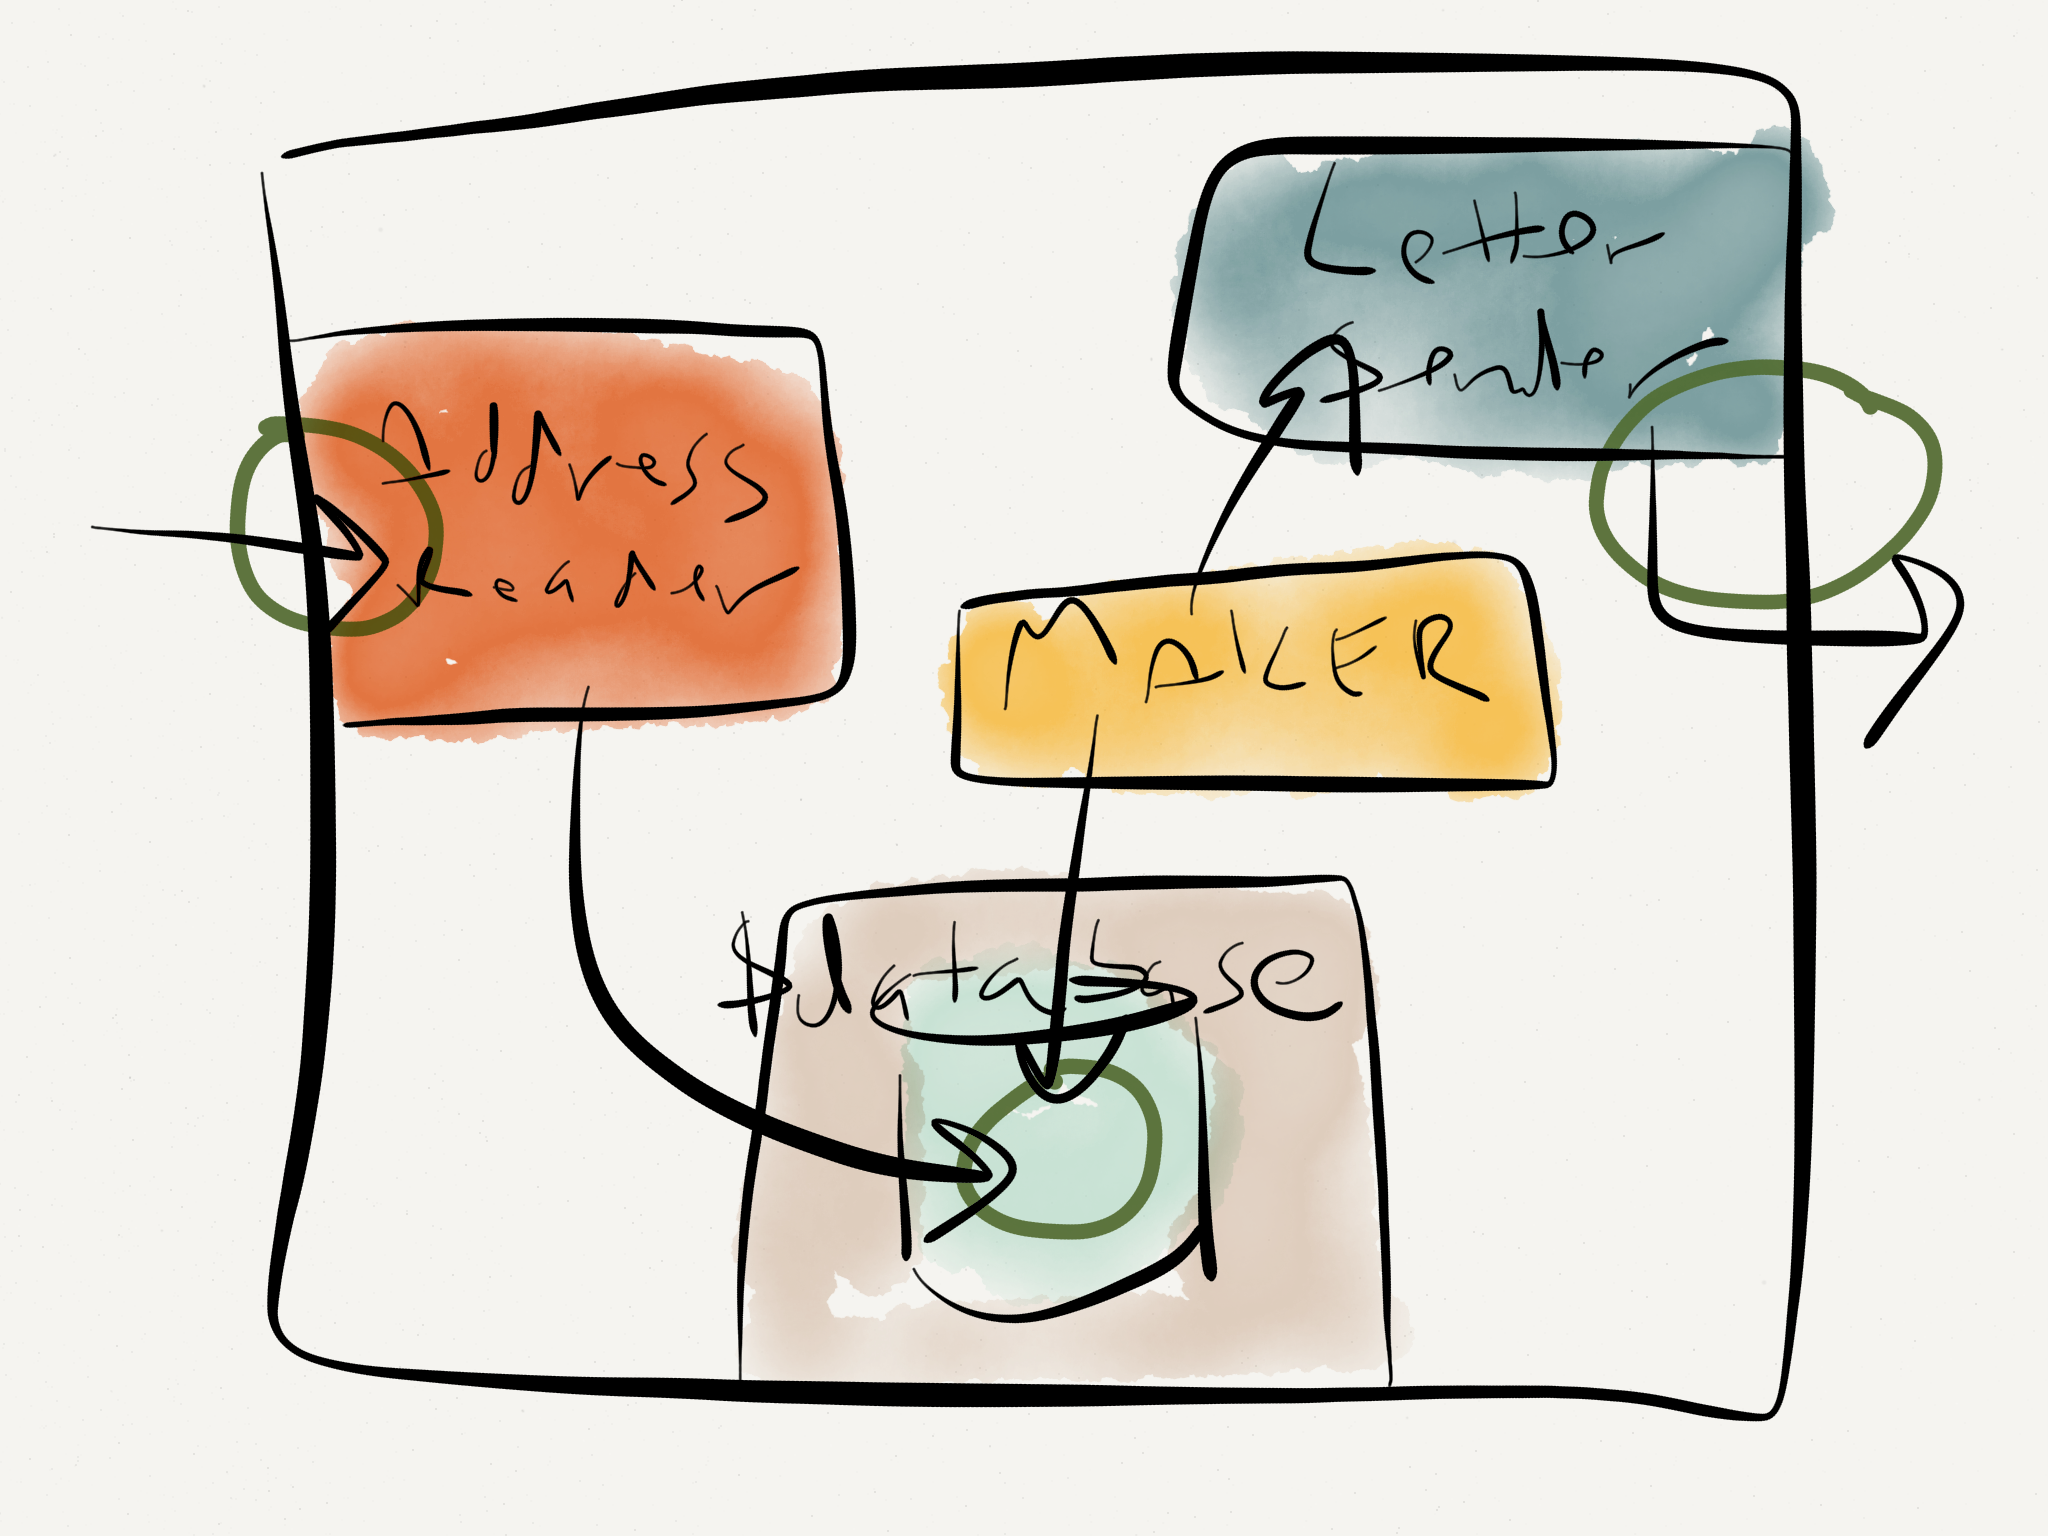 Letter
Sender
Address
Reader
MAKER
$database